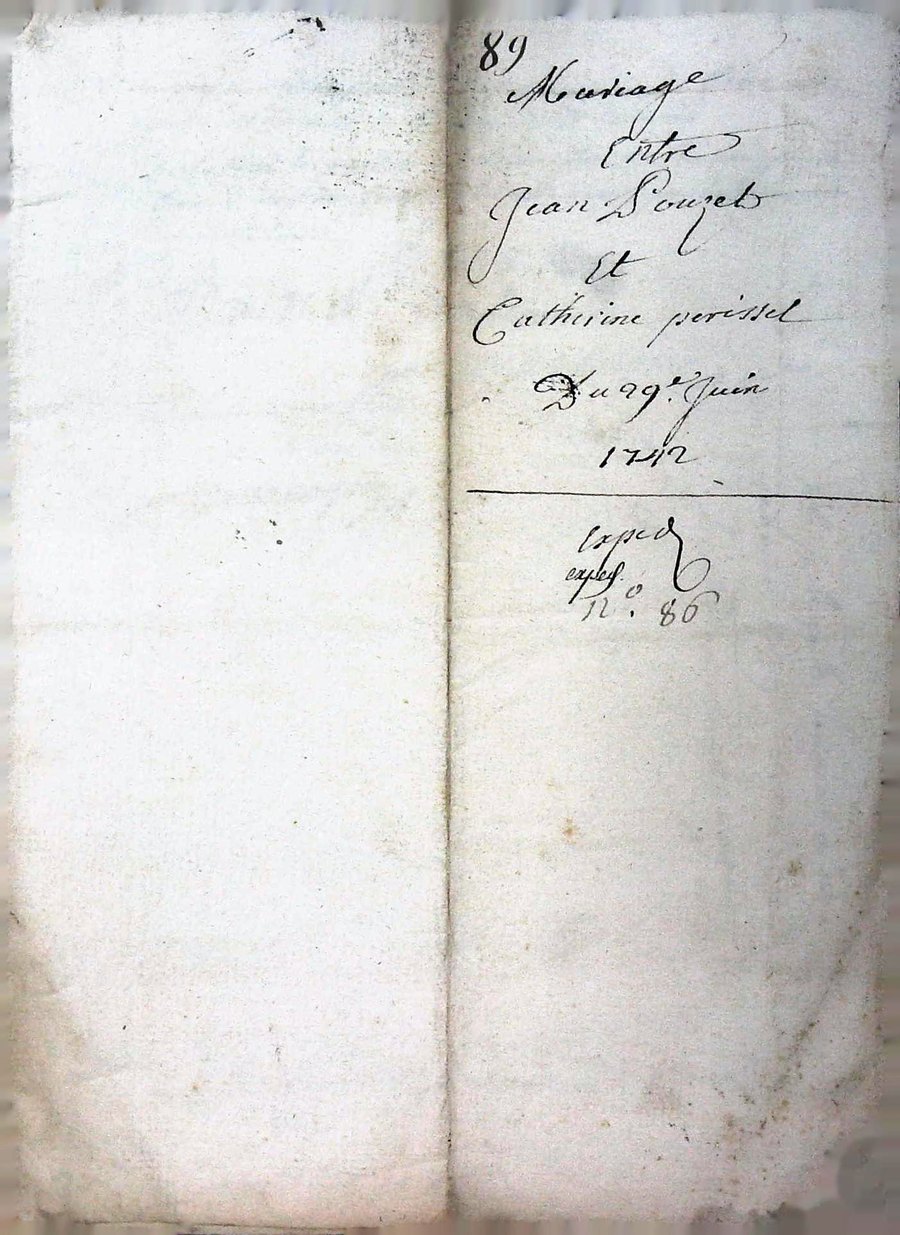 89
Mariage
Entre
Jean Pouzet
Et
Catherine perissel
Du 29e. Juin
1742
exped
exped.
no. 86